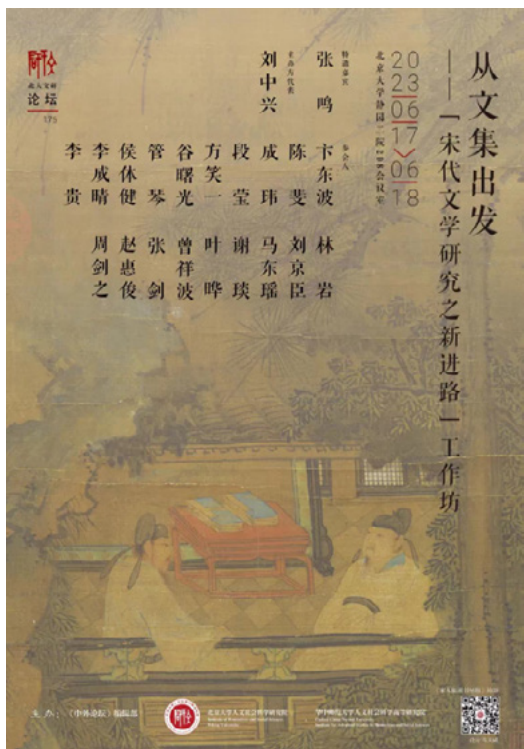 从文集出发
——「宋代文学研究之新进路」工作坊
2023 06 17 > 06 18
北京大学静园二院208会议室
特邀嘉宾
张鸣
主办方代表
刘中兴
参会人
卞东波 林岩
陈斐 刘京臣
成玮 马东瑶
段莹 谢琰
方笑一 叶晔
谷曙光 曾祥波
管琴 张剑
侯体健 赵惠俊
李成晴 周剑之
李贵
北大文研
论坛
175
主办：《中外论坛》编辑部
北京大学人文社会科学研究院
华中师范大学人文社会科学高等研究院